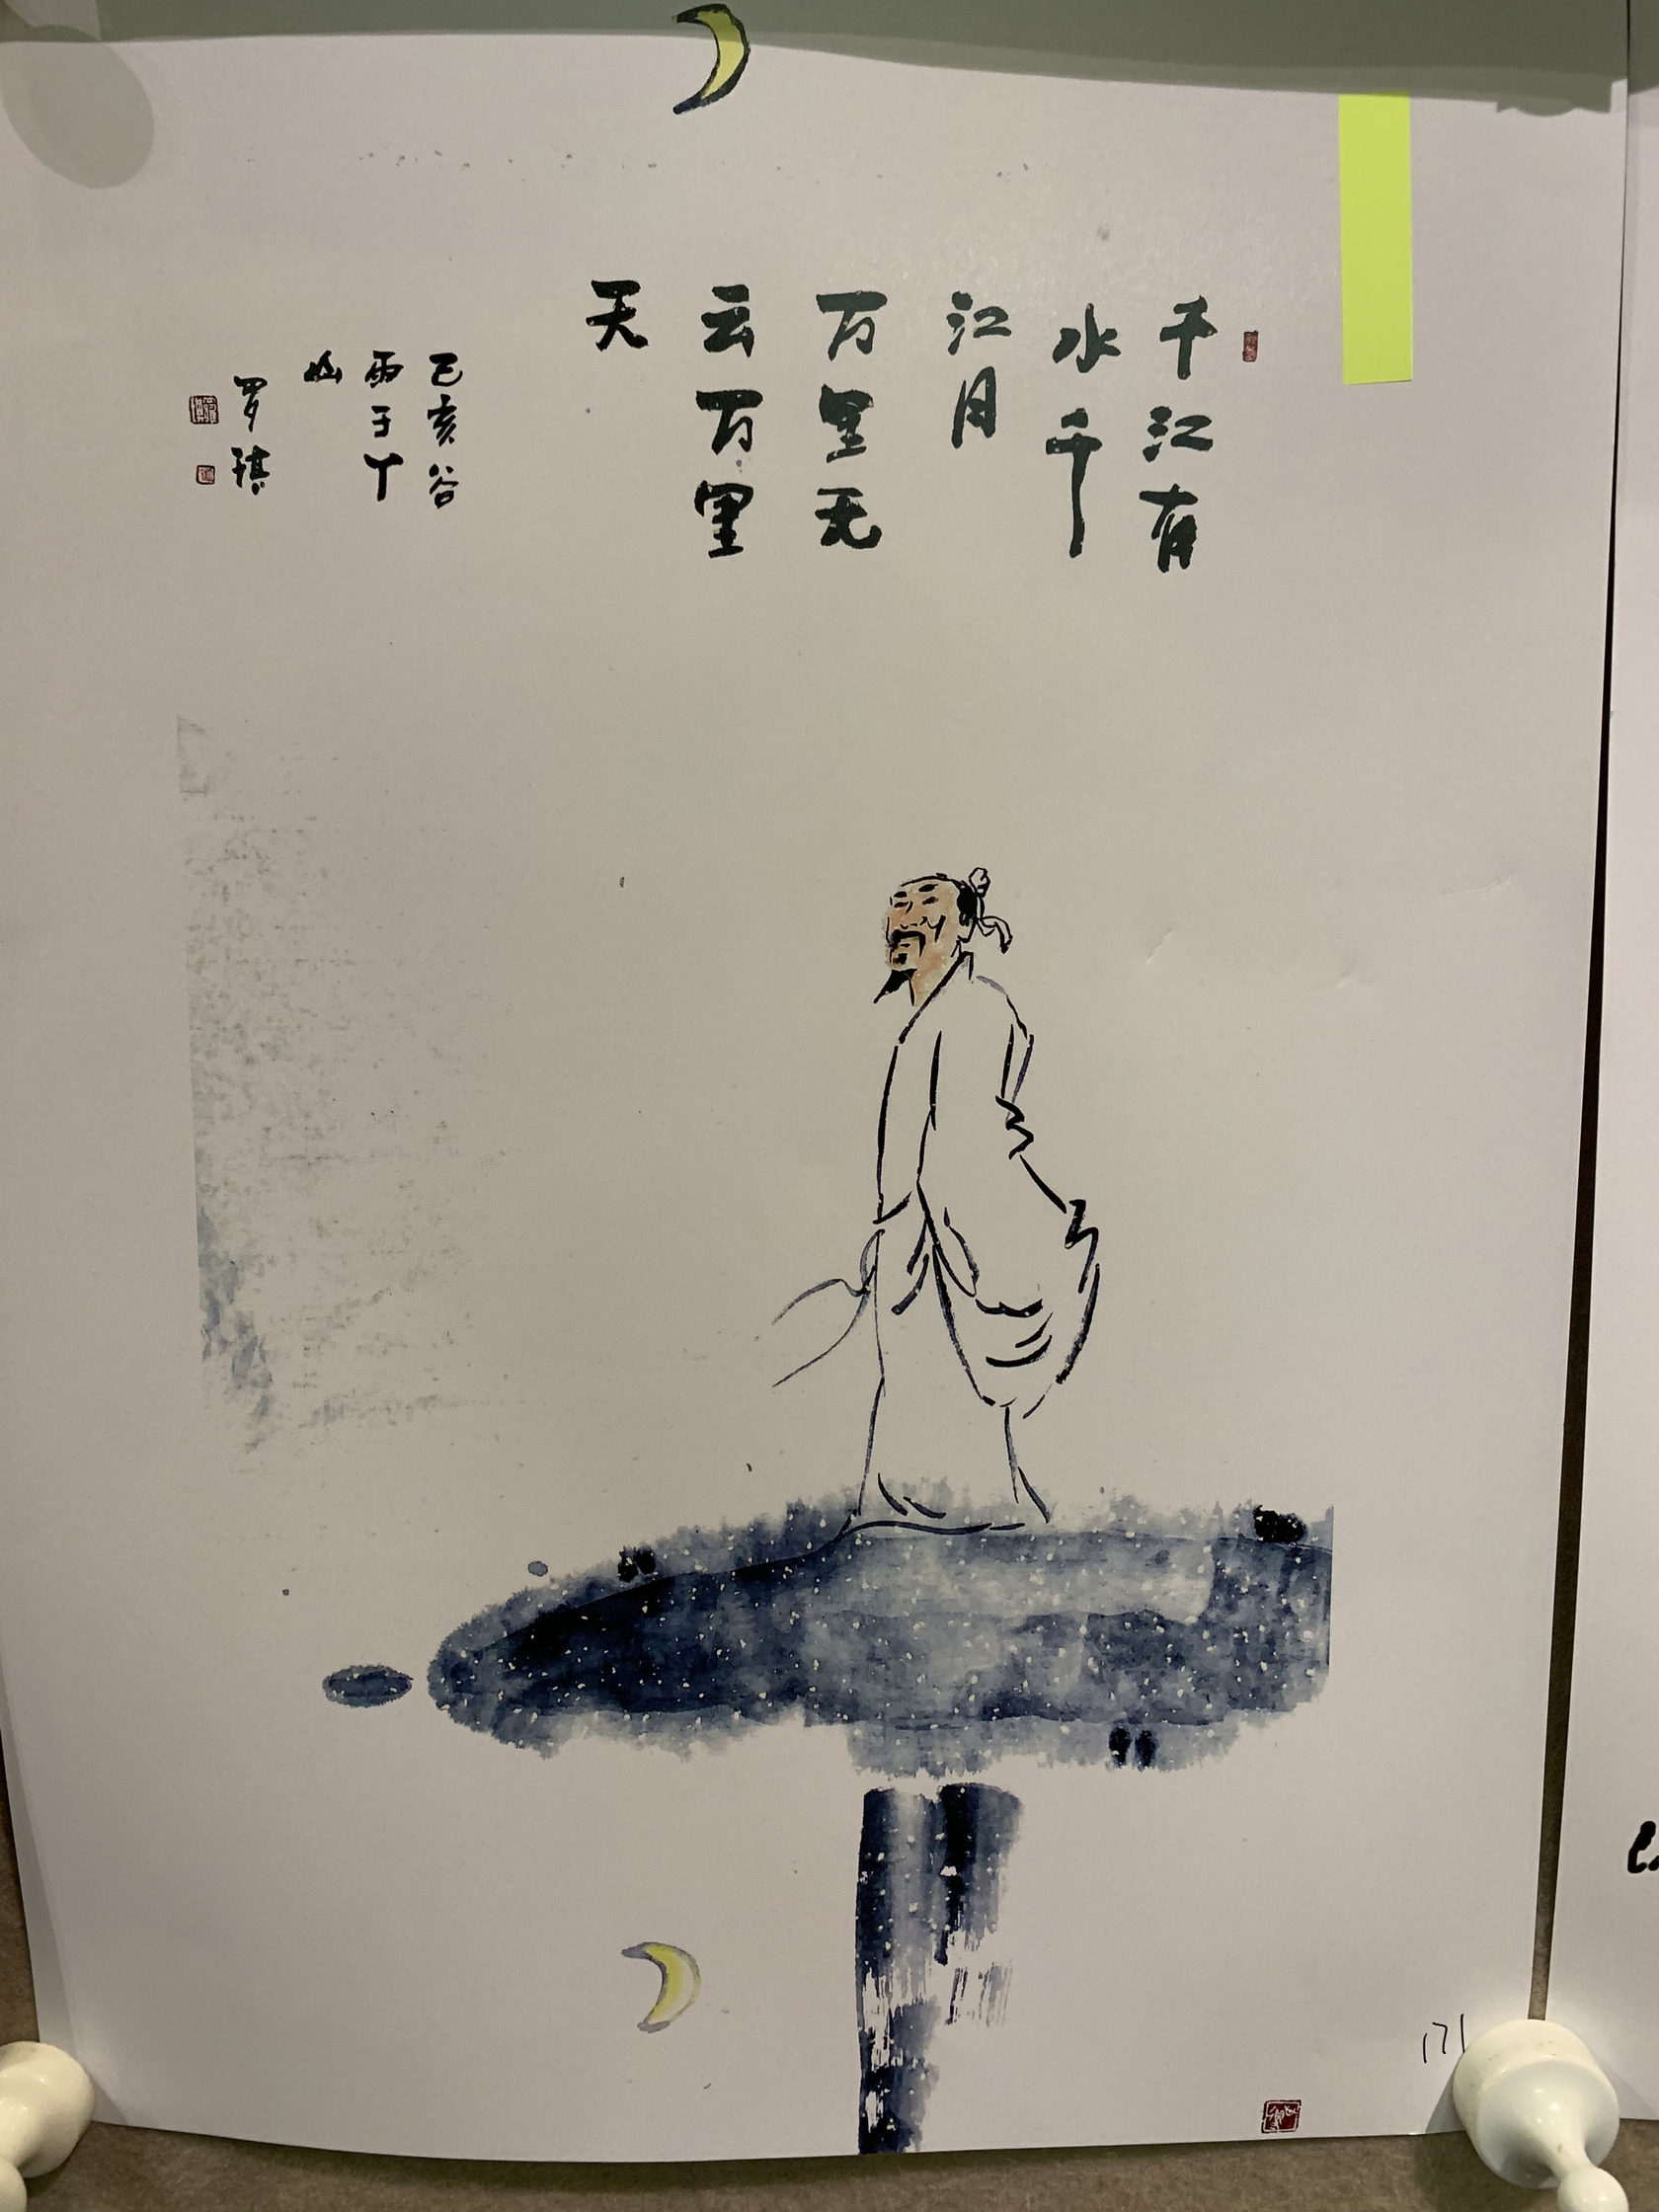 千江有
水千
江月
万里无
云万里
天
己亥谷
雨于丫
山
罗琪
171